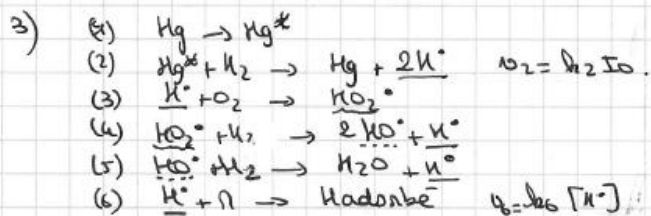 3) (1) Hg → Hg*
(2) Hg* + H2 → Hg + 2H• v2 = k2 I0.
(3) H• + O2 → HO2•
(4) HO2• + H2 → 2 HO• + H•
(5) HO• + H2 → H2O + H•
(6) H• + Π → Hadsorbé v6 = k6 [H•]